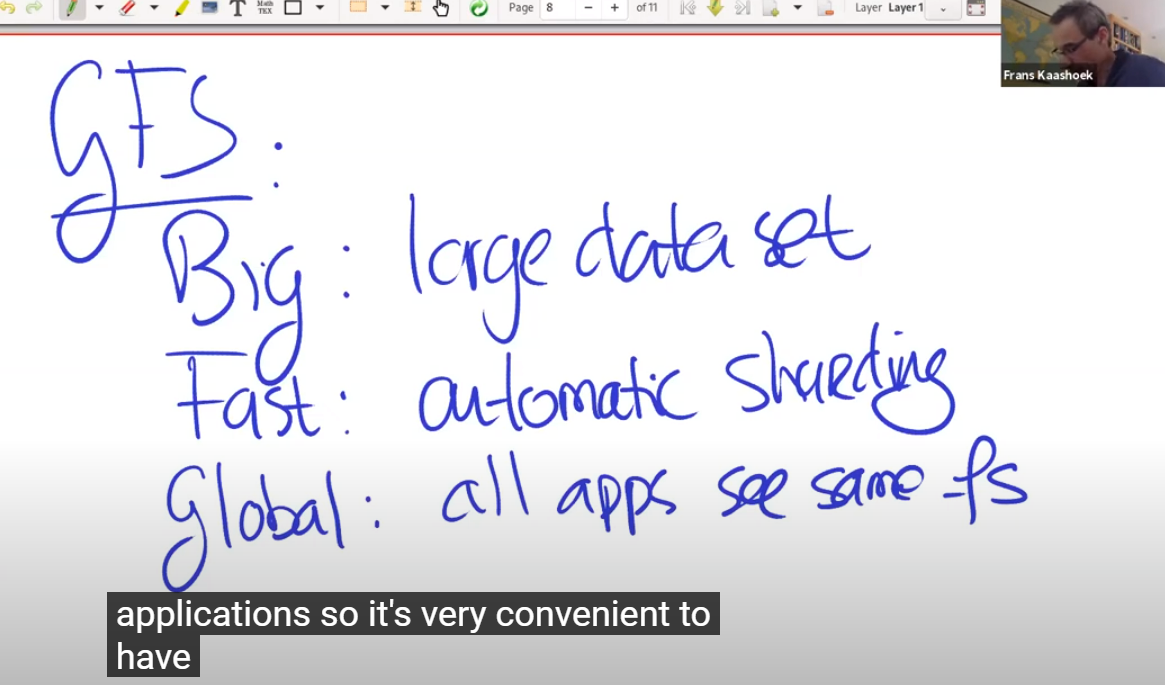 Page 8 - + of 11 Layer Layer 1
Frans Kaashoek
GFS:
Big: large data set
Fast: automatic sharding
Global: all apps see same fs
applications so it's very convenient to
have